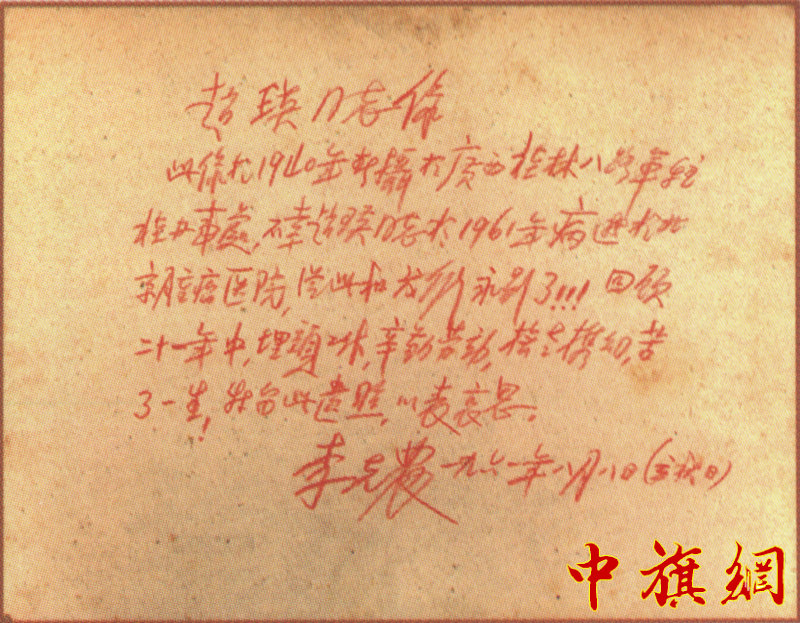 赵瑛同志像
此像于1940年中摄于广西桂林八路军驻
桂办事處,不幸赵瑛同志于1961年病逝于北
京肿瘤医院,从此和我们永别了!!! 回顾
二十一年中,埋頭工作,辛勤劳动,扶老携幼,苦
了一生!特留此遗照,以表哀思。
李克農 一九六一年八月八日(立秋日)
中旗網